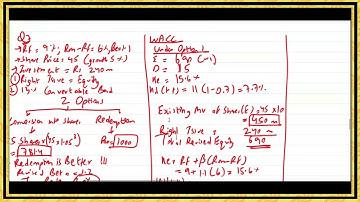 Q3
→ Rf = 9%, Rm-Rf = 6%, Beta 1
→ Share Price = 45 (growth 5%)
→ Investment = Rs 240m
① Right Issue = Equity
② 13% Convertable Bond
2 Options
Conversion into shares
Redemption
Rs = 1000
= 781.4
Redemption is Better !!!
Revised Beta = 1.2
WACC
Under Option 1
E = 690 (m)
D = 15
Ke = 15.6%
Existing MV of Share (E) = 45 x 10
= 450 m
Right Issue = 240 m
Total Revised Equity 690
Ke = Rf + β(Rm-Rf)
= 9 + 1.1 (6) = 15.6%